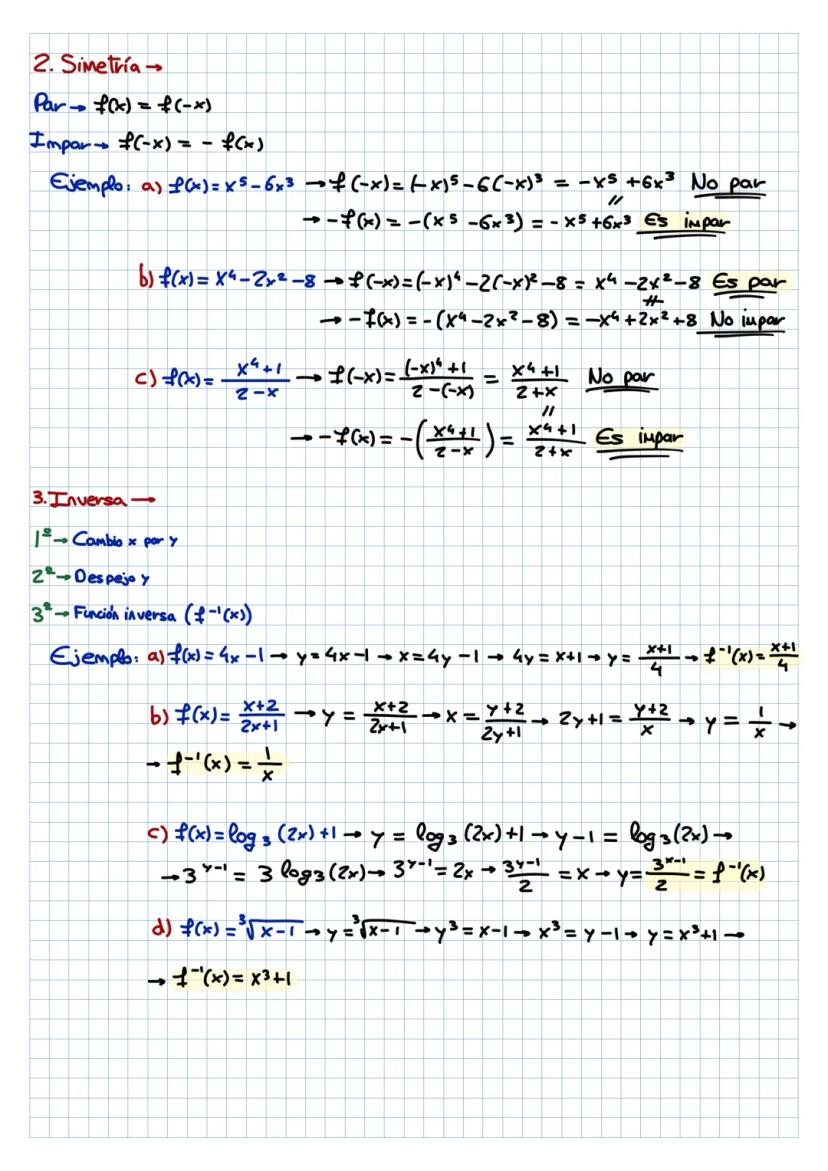 2. Simetría →
Par → f(x) = f(-x)
Impar → f(-x) = - f(x)
Ejemplo: a) f(x) = x⁵ - 6x³ → f(-x) = (-x)⁵ - 6(-x)³ = -x⁵ + 6x³ No par
//
→ -f(x) = -(x⁵ - 6x³) = -x⁵ + 6x³ Es impar
b) f(x) = x⁴ - 2x² - 8 → f(-x) = (-x)⁴ - 2(-x)² - 8 = x⁴ - 2x² - 8 Es par
≠
→ -f(x) = -(x⁴ - 2x² - 8) = -x⁴ + 2x² + 8 No impar
c) f(x) = (x⁴+1)/(2-x) → f(-x) = ((-x)⁴+1)/(2-(-x)) = (x⁴+1)/(2+x) No par
//
→ -f(x) = -((x⁴+1)/(2-x)) = (x⁴+1)/(2+x) Es impar
3. Inversa →
1º → Cambio x por y
2º → Despejo y
3º → Función inversa (f⁻¹(x))
Ejemplo: a) f(x) = 4x - 1 → y = 4x - 1 → x = 4y - 1 → 4y = x+1 → y = (x+1)/4 → f⁻¹(x) = (x+1)/4
b) f(x) = (x+2)/(2x+1) → y = (x+2)/(2x+1) → x = (y+2)/(2y+1) → 2y+1 = (y+2)/x → y = 1/x →
→ f⁻¹(x) = 1/x
c) f(x) = log₃(2x) + 1 → y = log₃(2x) + 1 → y - 1 = log₃(2x) →
→ 3^(y-1) = 3 log₃(2x) → 3^(y-1) = 2x → 3^(y-1)/2 = x → y = 3^(x-1)/2 = f⁻¹(x)
d) f(x) = ³√(x-1) → y = ³√(x-1) → y³ = x-1 → x³ = y-1 → y = x³+1 →
→ f⁻¹(x) = x³+1